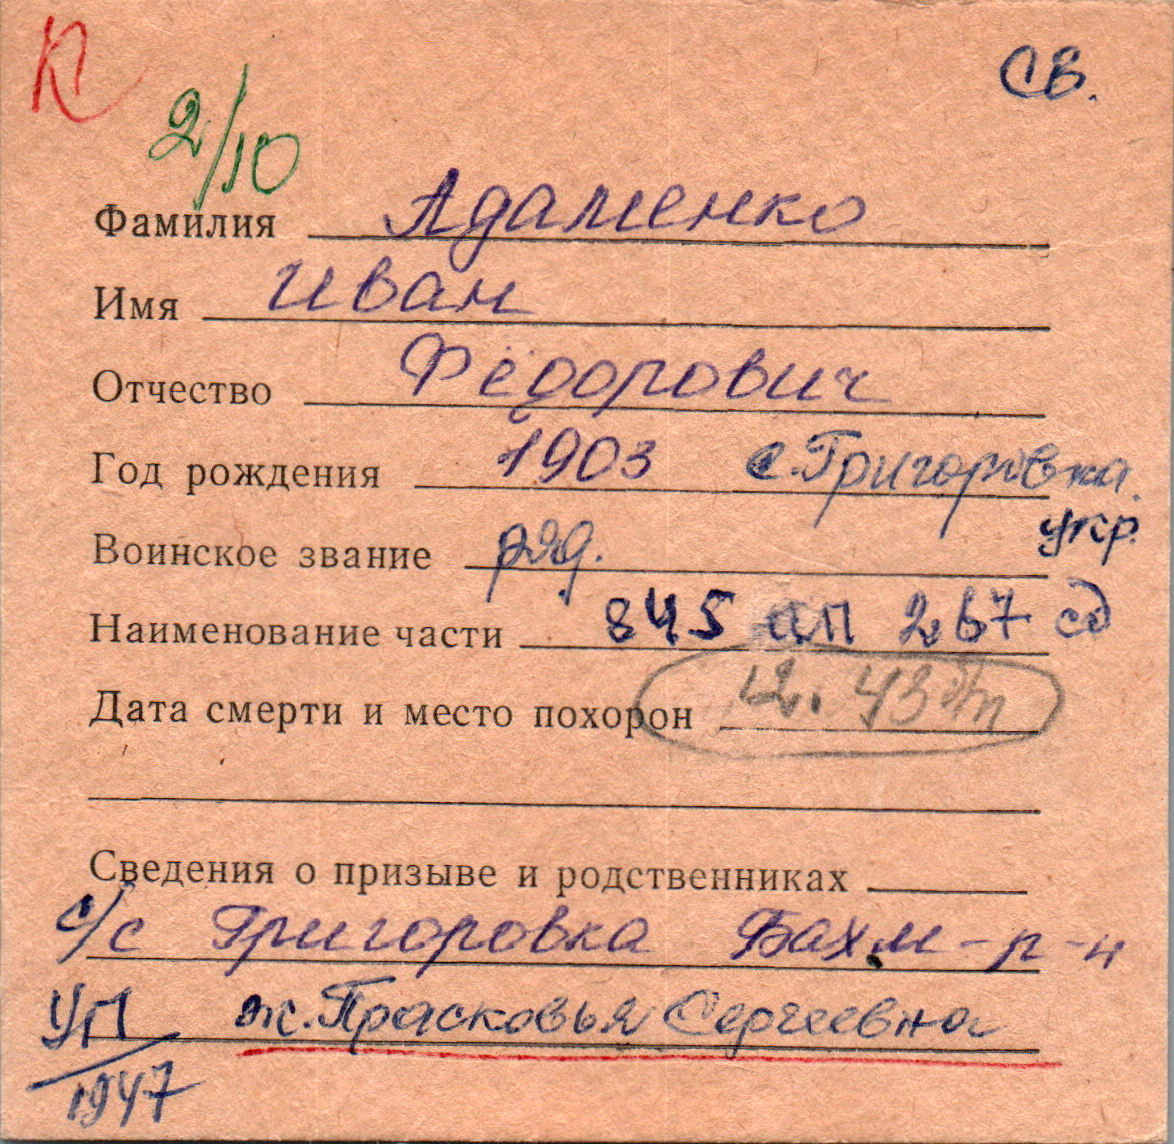 К
СВ.
2/10
Фамилия Адаменко
Имя Иван
Отчество Фёдорович
Год рождения 1903 с. Григоровка.
укр.
Воинское звание ряд.
Наименование части 845 ап 267 сд
Дата смерти и место похорон 12. 43 б/п
Сведения о призыве и родственниках
с/с Григоровка Бахм-р-н
УП ж. Прасковья Сергеевна
1947